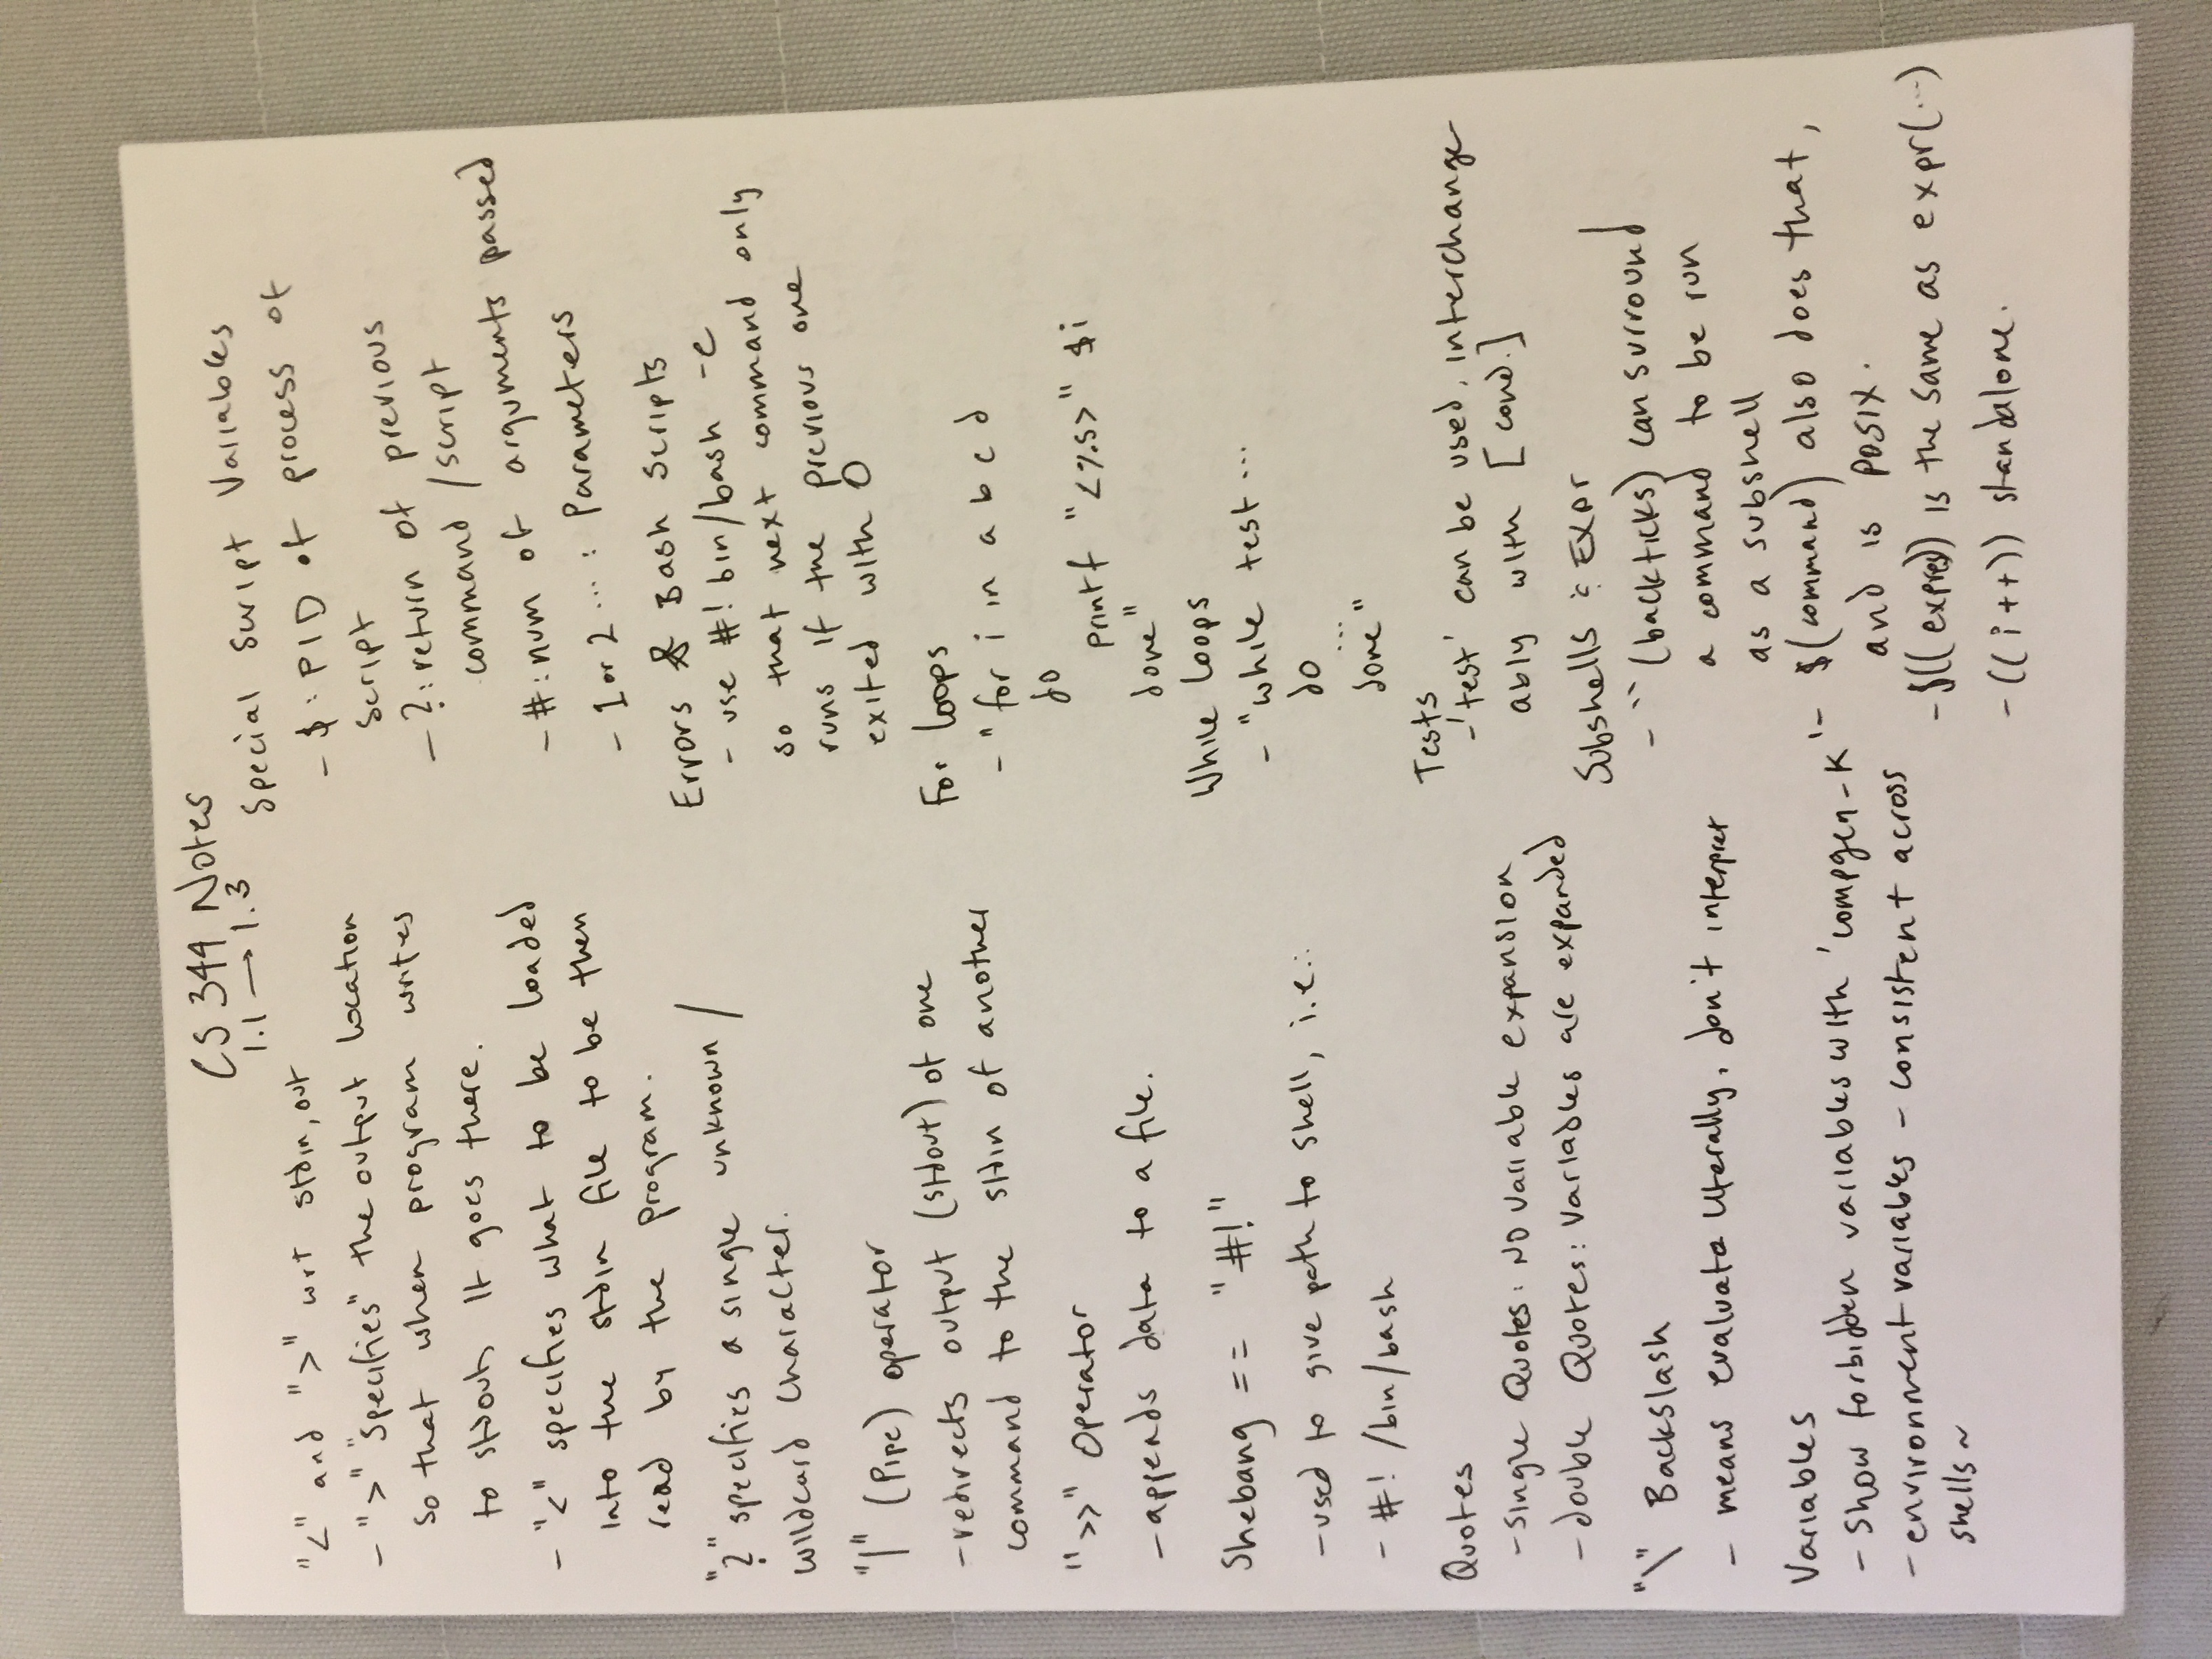 CS 344 Notes
1.1 → 1.3
"<" and ">" wrt stdin, out
- ">" "specifies" the output location
so that when program writes
to stdout, it goes there.
- "<" specifies what to be loaded
into the stdin file to be then
read by the program.
"?" specifies a single unknown /
wildcard character.
"|" (Pipe) operator
- redirects output (stdout) of one
command to the stdin of another
">>" Operator
- appends data to a file.
Shebang == "#!"
- used to give path to shell, i.e.:
- #! /bin/bash
Quotes
- Single Quotes: NO variable expansion
- double Quotes: Variables are expanded
"\" Backslash
- means evaluate literally, don't interpret
Variables
- Show forbidden variables with 'compgen -k'
- environment variables - consistent across
shells ~
Special Script Variables
- $: PID of process of
script
- ?: return of previous
command / script
- #: num of arguments passed
- 1 or 2 ... : Parameters
Errors & Bash Scripts
- use #! bin/bash -e
so that next command only
runs if the previous one
exited with 0
For loops
- "for i in a b c d
do
printf "<%s>" $i
done"
While loops
- "while test ...
do
...
done"
Tests
- 'test' can be used, interchange
ably with [cond.]
Subshells & Expr
- `` (backticks) can surround
a command to be run
as a subshell
- $(command) also does that,
and is POSIX.
- $((expres)) is the same as expr(...)
- ((i++)) standalone.